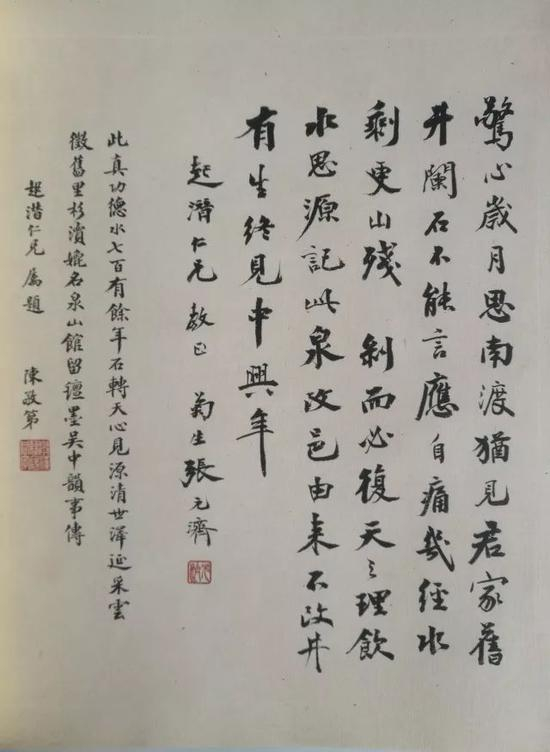 驚心歲月思南渡猶見君家舊
井闌石不能言應自痛幾經水
剩更山殘 剝而必復天之理飲
水思源記此泉改邑由來不改井
有生終見中興年
起潛仁兄教正 菊生張元濟
此真功德水七百有餘年石轉天心見源清世澤延采雲
徵舊里杉瀆媲名泉山館留䃼墨吳中韻事傳
起潛仁兄屬題 陳敬第